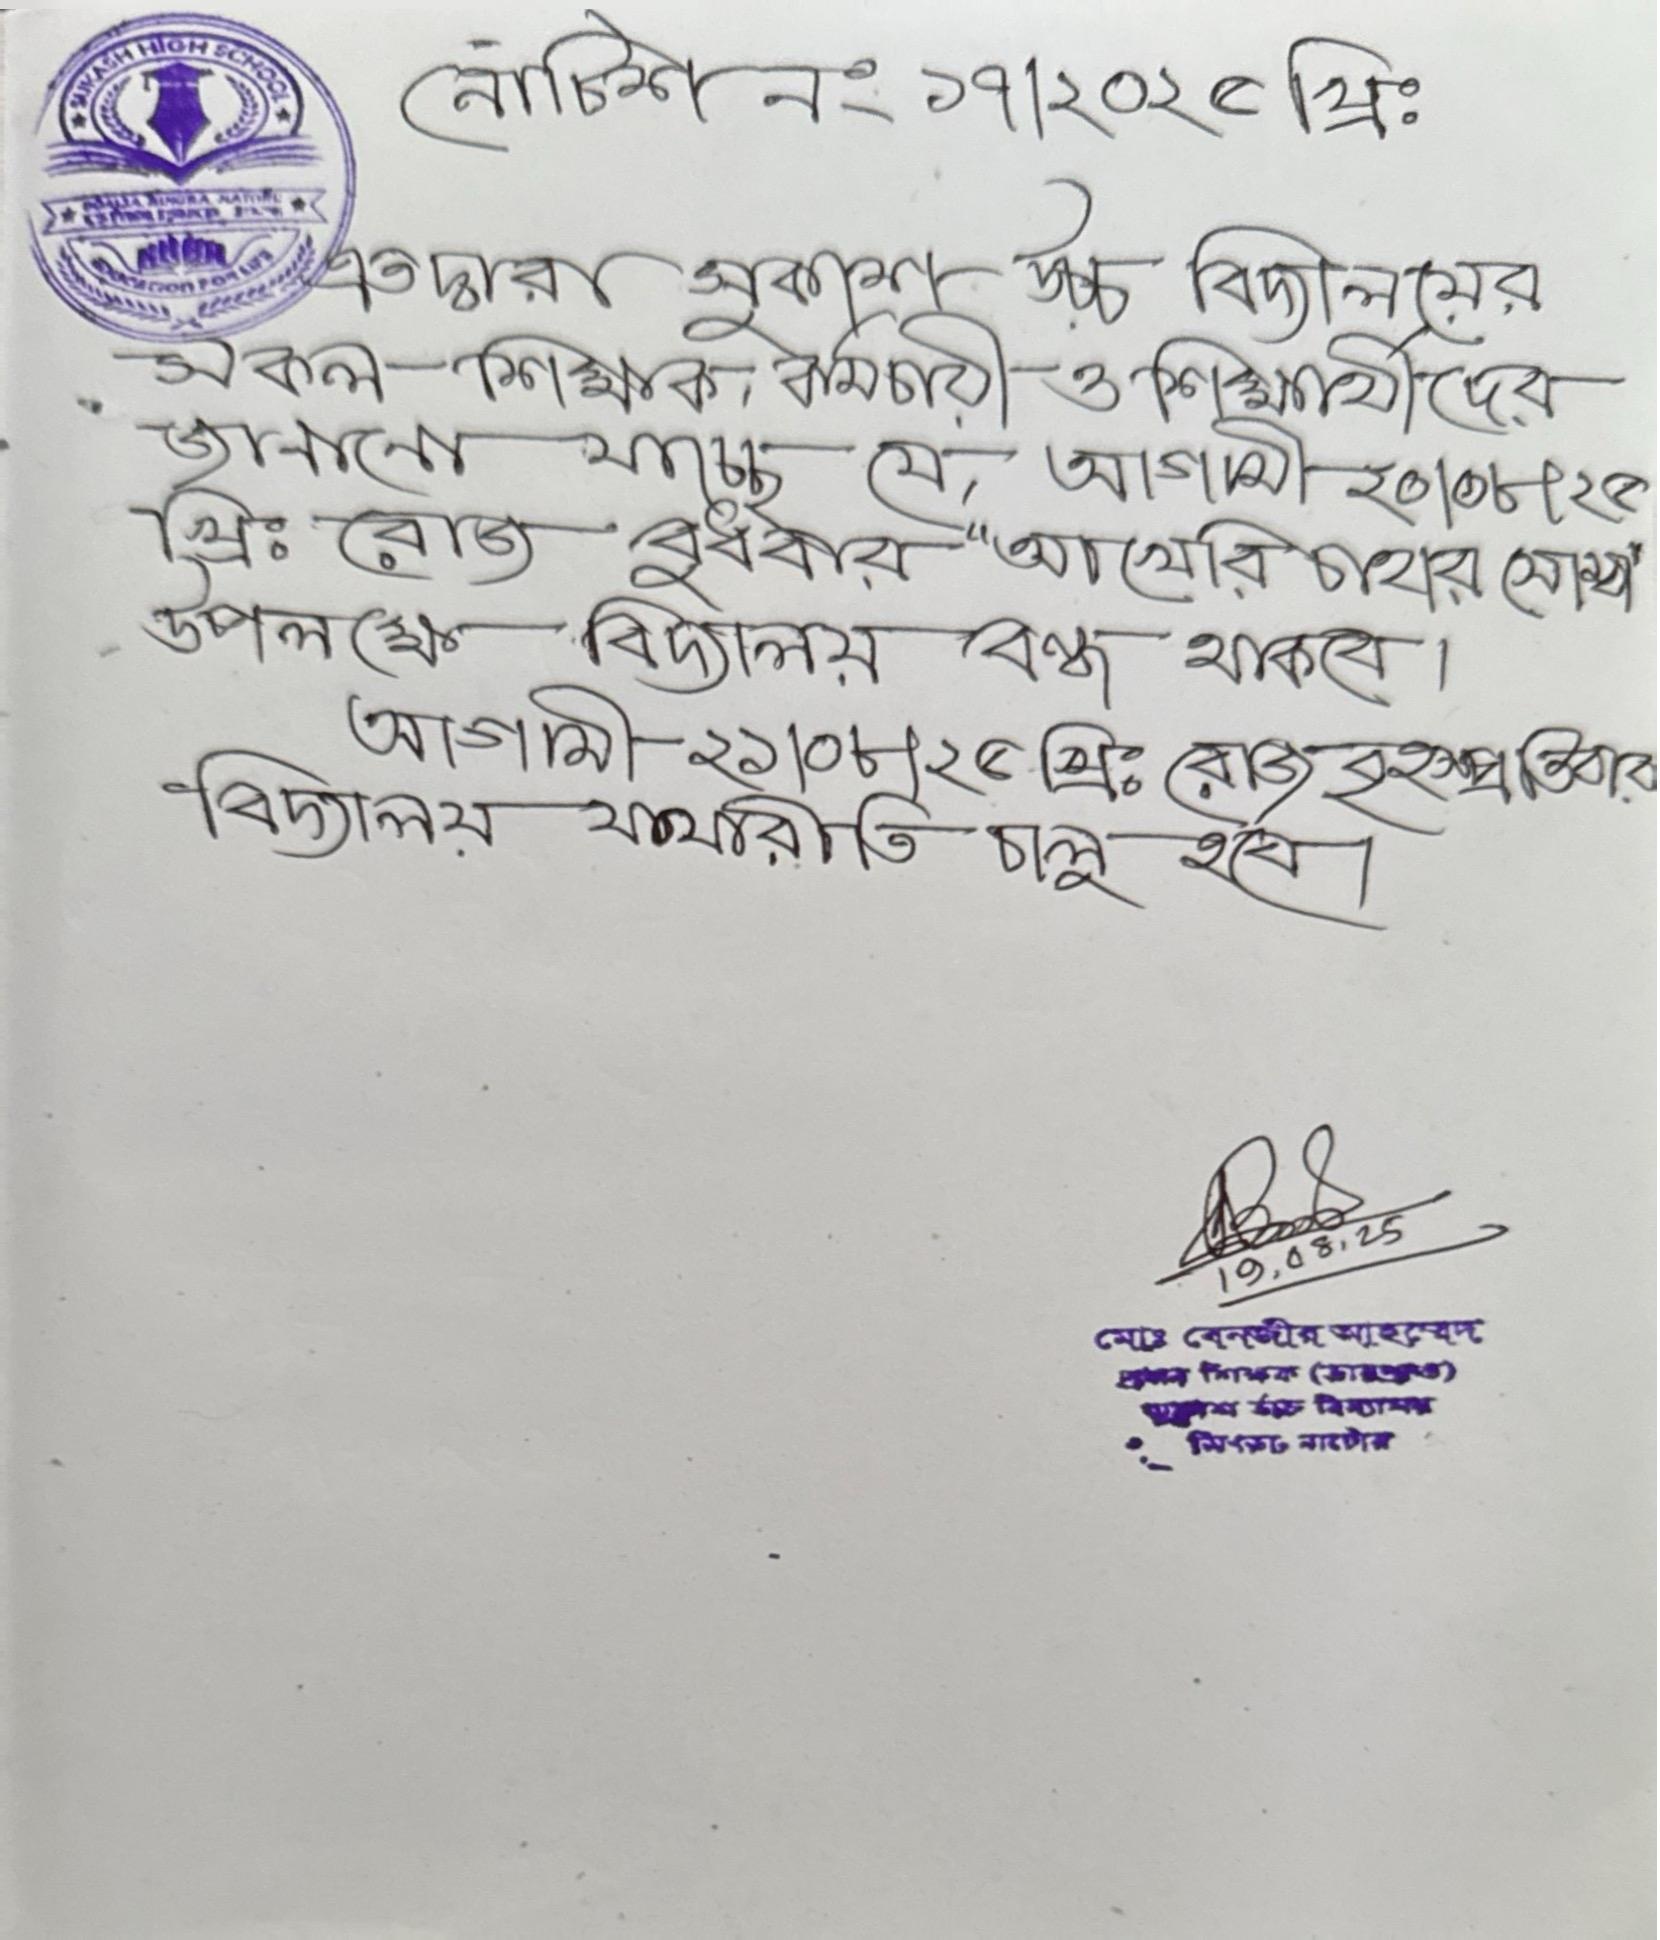 SUKASH HIGH SCHOOL
EDUCATION FOR LIFE
নোটিশ নং ১৭/২০২৫ খ্রিঃ
এতদ্বারা সুকাশ উচ্চ বিদ্যালয়ের
সকল শিক্ষক, কর্মচারী ও শিক্ষার্থীদের
জানানো যাচ্ছে যে, আগামী ২০/০৮/২৫
খ্রিঃ রোজ বুধবার "আখেরি চাহার সোম্বা"
উপলক্ষে বিদ্যালয় বন্ধ থাকবে।
আগামী ২১/০৮/২৫ খ্রিঃ রোজ বৃহস্প্রতিবার
বিদ্যালয় যথারীতি চালু হবে।
19.08.25
মোঃ বেনজীর আহম্মেদ
প্রধান শিক্ষক (ভারপ্রাপ্ত)
সুকাশ উচ্চ বিদ্যালয়
সিংড়া নাটোর